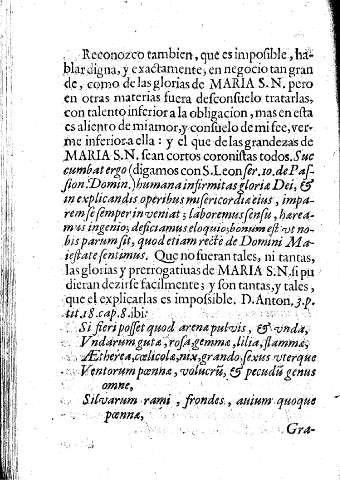 Reconozco tambien, que es imposible, ha-
blar digna, y exactamente, en negocio tan gran
de, como de las glorias de MARIA S.N. pero
en otras materias fuera desconsuelo tratarlas,
con talento inferior a la obligacion, mas en esta
es aliento de mi amor, y consuelo de mi fee, ver-
me inferior a ella : y el que de las grandezas de
MARIA S.N. sean cortos coronistas todos. Suc
cumbat ergo (digamos con S. Leon ser. 10. de Pas-
sion. Domin.) humana infirmitas gloria Dei, &
in explicandis operibus misericordia eius, impa-
rem se semper inveniat; laboremus sensu, hærea-
mus ingenio; deficiamus eloquio; bonum est vt no-
bis parum sit, quod etiam rectè de Domini Ma-
iestate sentimus. Que no fueran tales, ni tantas,
las glorias y prerrogatiuas de MARIA S.N. si pu
dieran dezirse facilmente; y son tantas, y tales,
que el explicarlas es impossible. D. Anton. 3. p.
tit. 18. cap. 8. ibi:
Si fieri posset quod arena pulvis, & vndæ,
Vndarum gutæ, rosa, gemmæ, lilia, flammæ,
Ætherea, cœlicolæ, nix, grando, sexus vterque
Ventorum pœnnæ, volucrũ, & pecudũ genus
omne,
Silvarum rami, frondes, avium quoque
pœnnæ,
Gra-